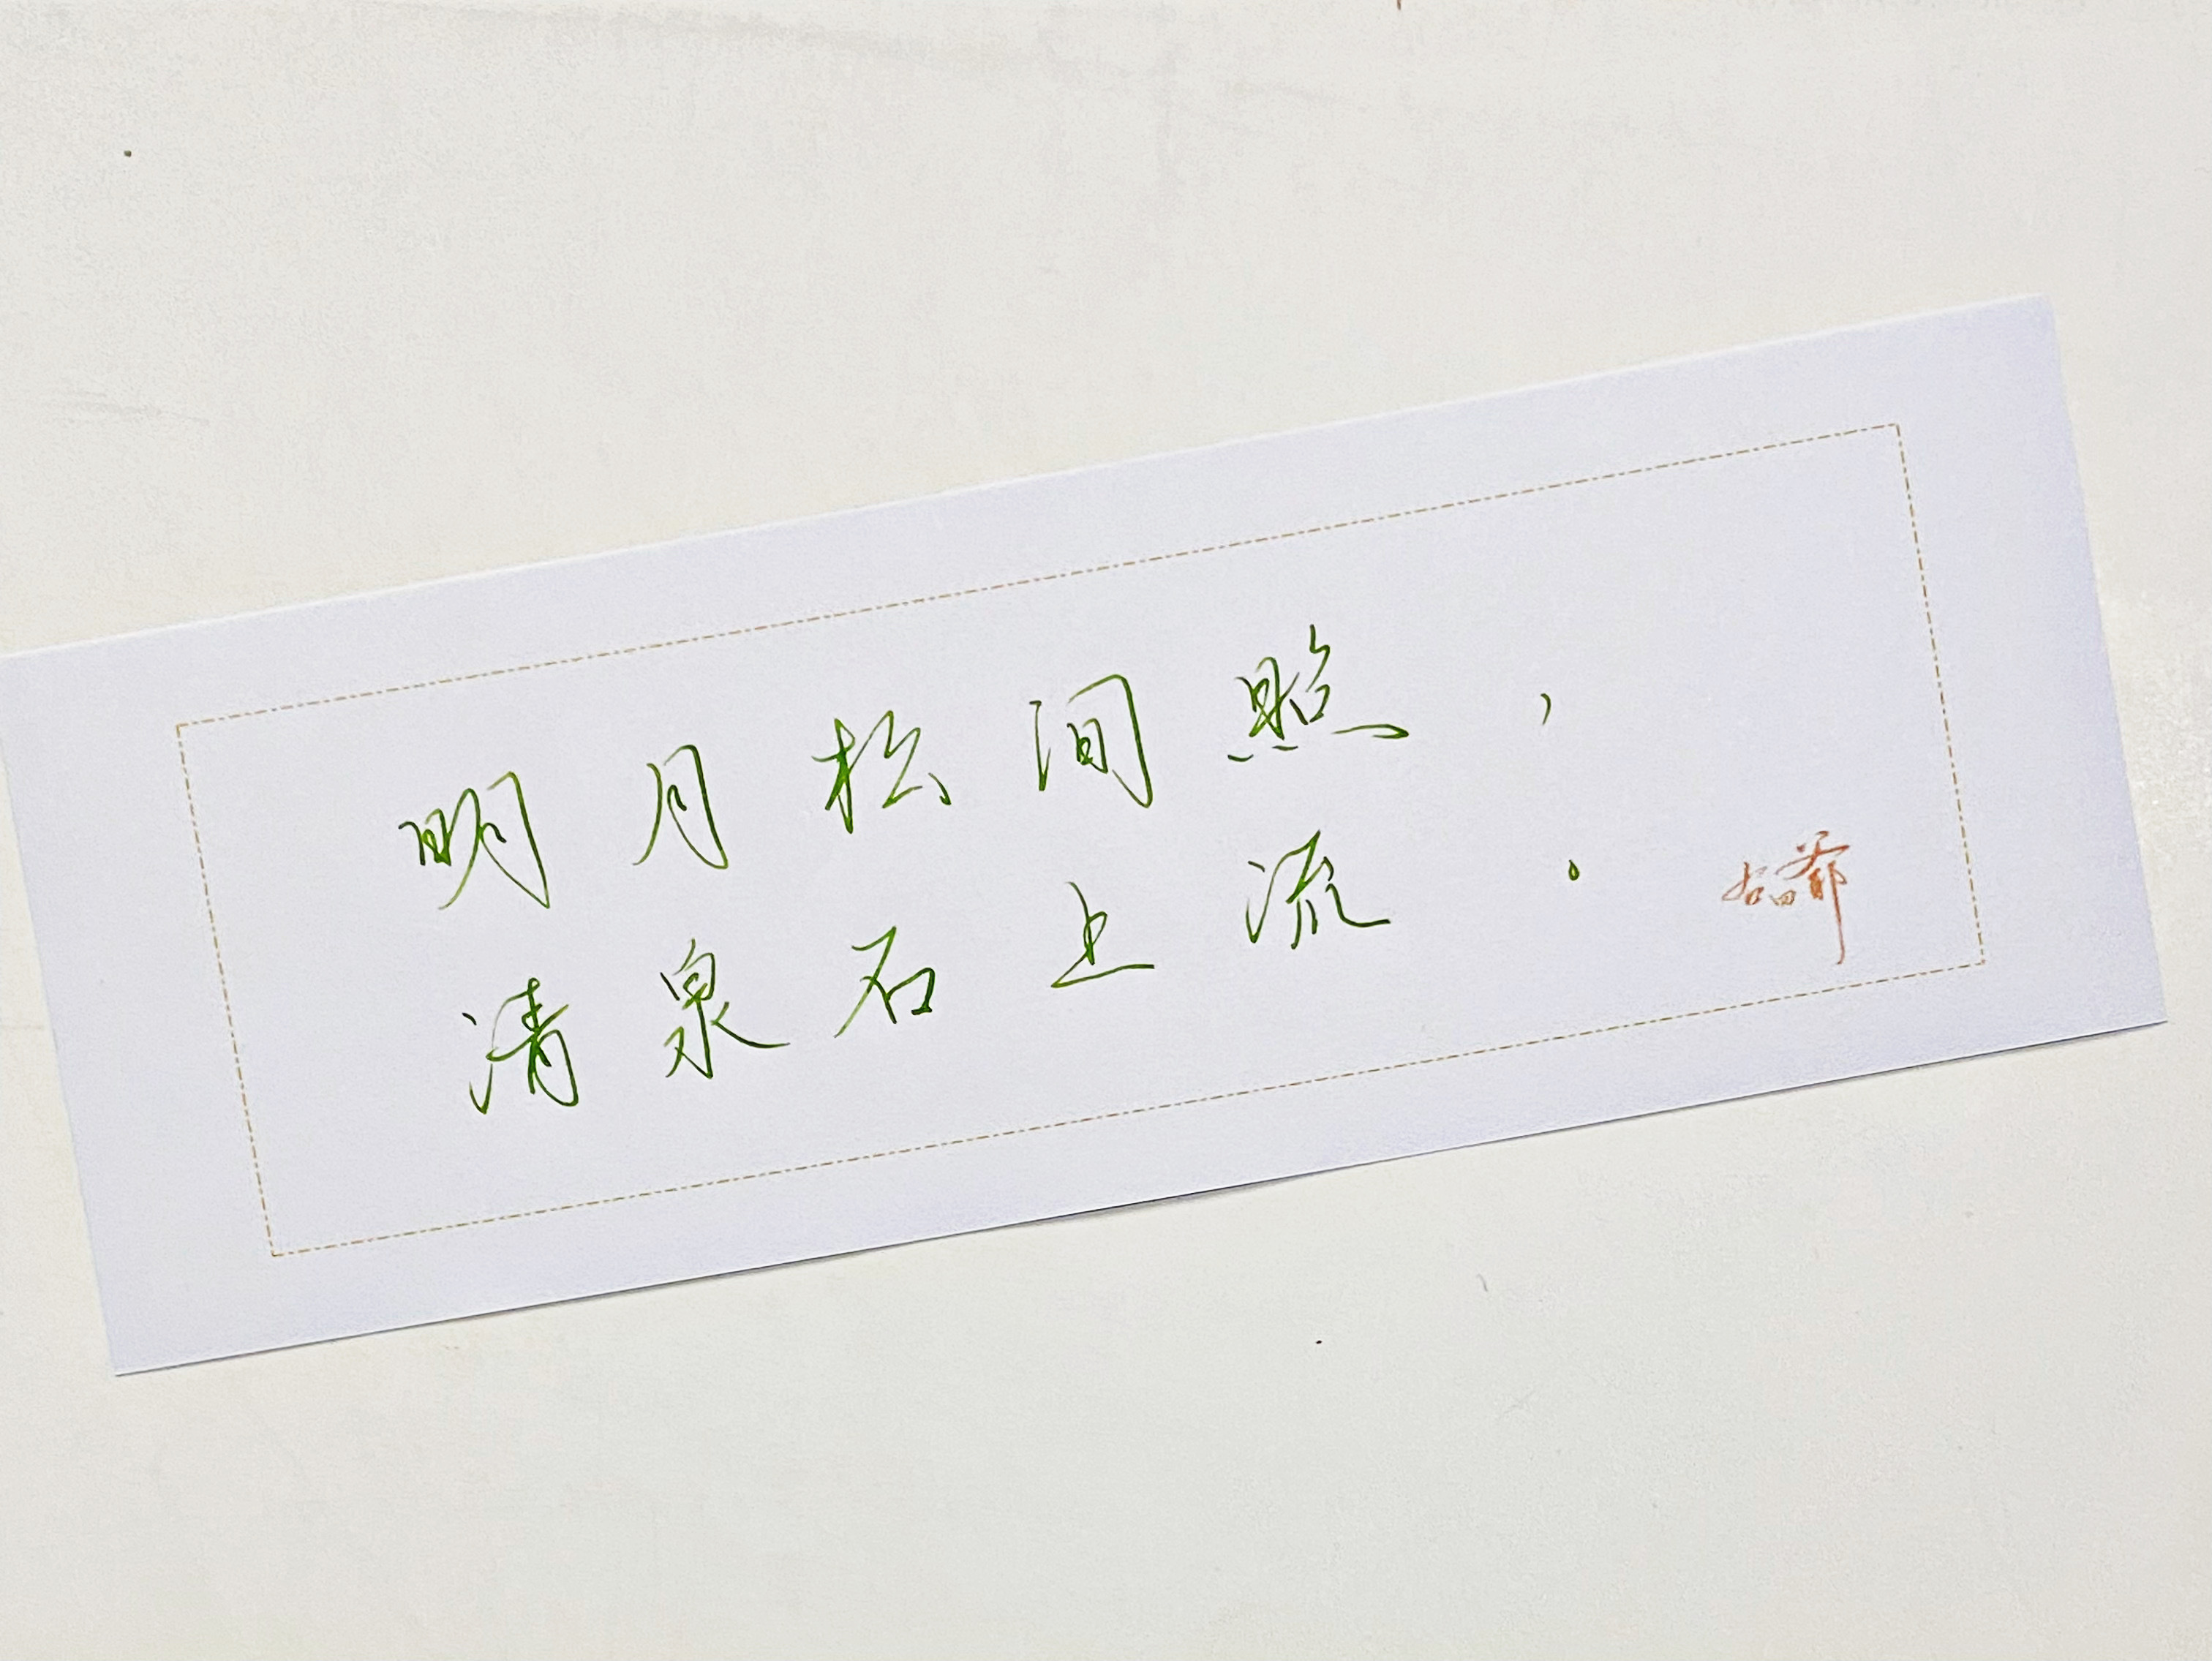 明月松间照，
清泉石上流。